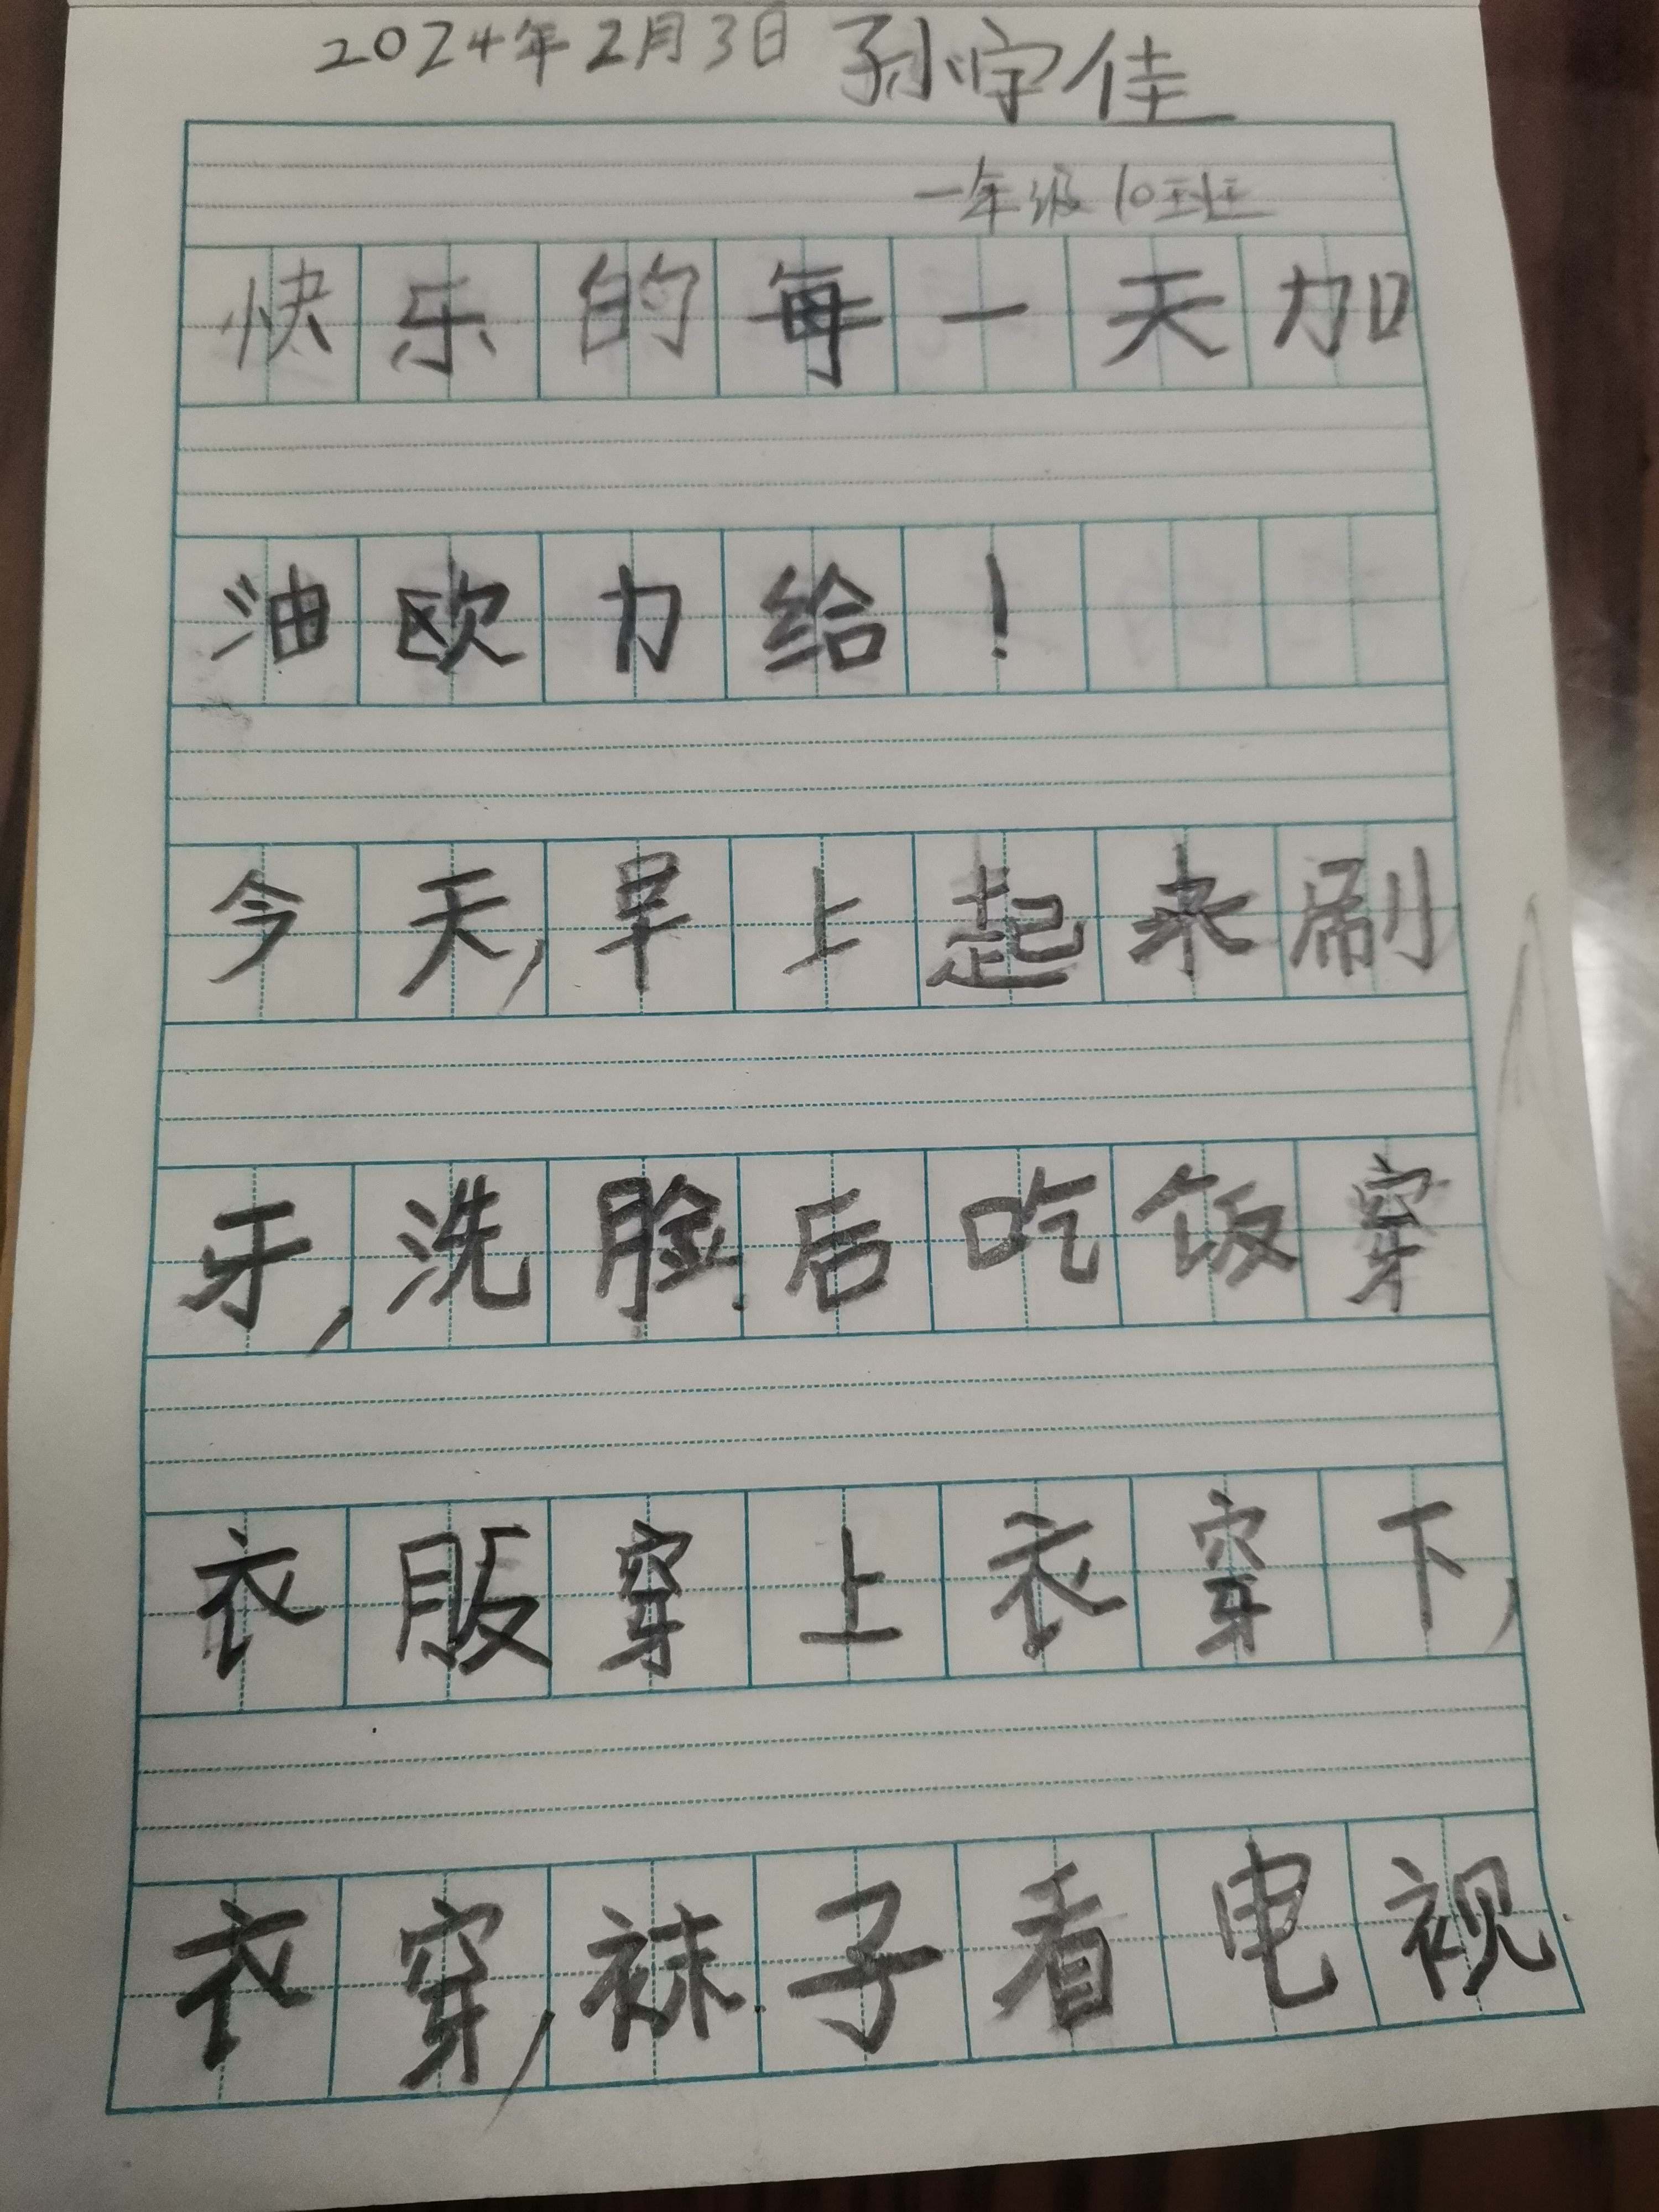 2024年2月3日 孙宇佳
一年级10班
快乐的每一天加
油欧力给!
今天,早上起来刷
牙,洗脸.后吃饭穿
衣服穿上衣穿下,
衣穿,袜.子看电视.